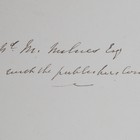 Wm. Milner Esq
with the publishers com